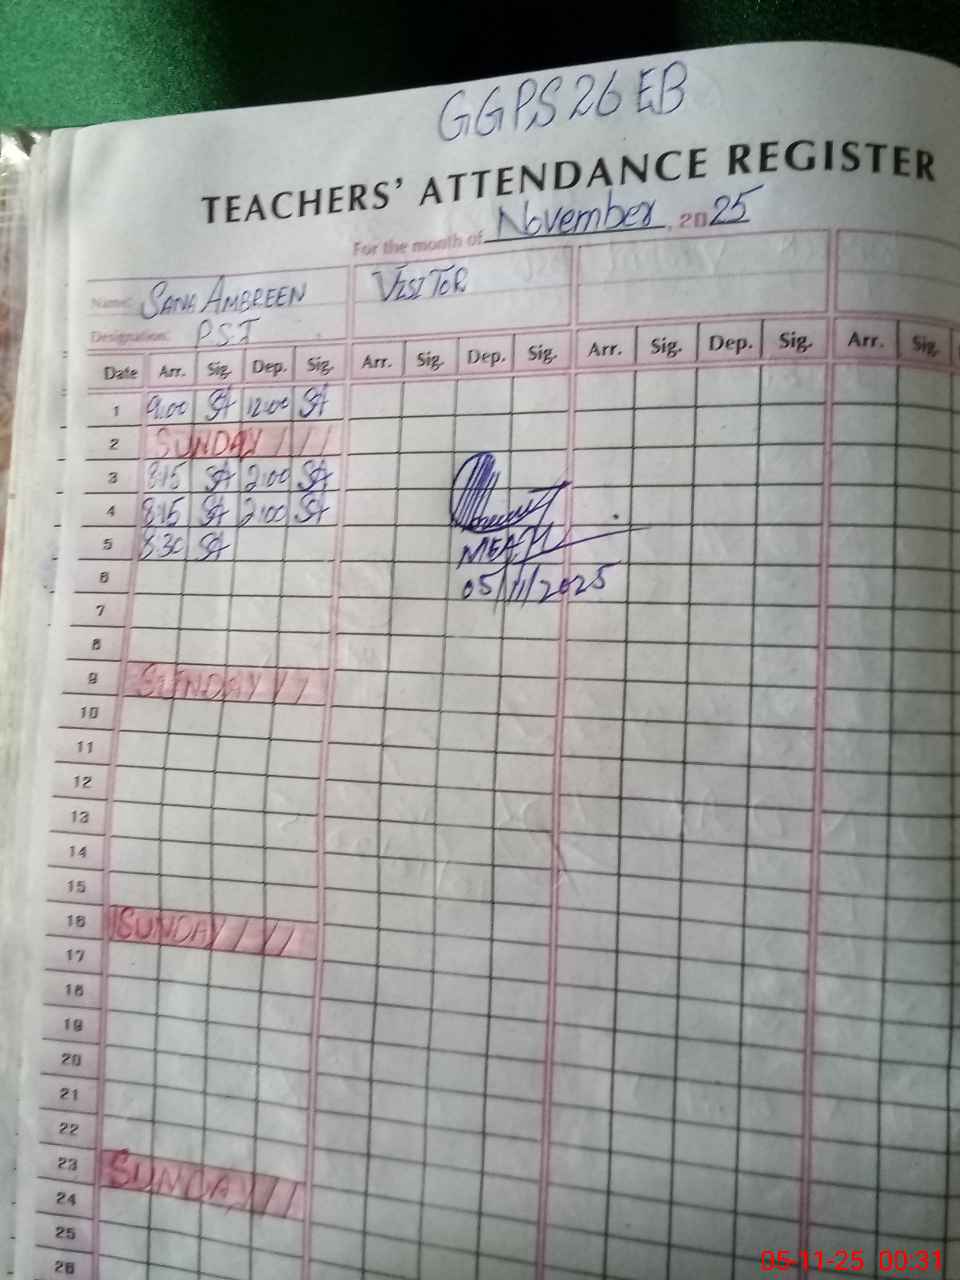 GGPS 26 EB
TEACHERS' ATTENDANCE REGISTER
For the month of November, 2025
Name: SANA AMBREEN VISITOR
Designation: P.S.T
Date Arr. Sig. Dep. Sig. Arr. Sig. Dep. Sig. Arr. Sig. Dep. Sig. Arr. Sig.
1 9:00 SA 12:00 SA
2 SUNDAY
3 8:15 SA 2:00 SA
4 8:15 SA 2:00 SA
5 8:30 SA
MEA
05/11/2025
6
7
8
9 SUNDAY
10
11
12
13
14
15
16 SUNDAY
17
18
19
20
21
22
23 SUNDAY
24
25
26
05-11-25 00:31